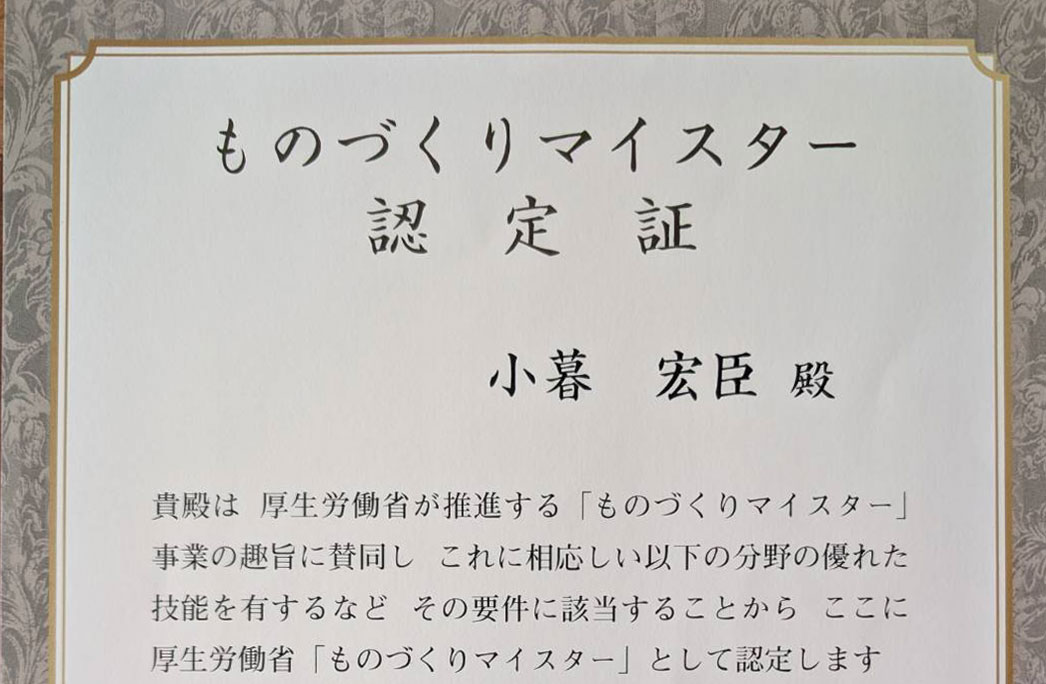 ものづくりマイスター
認定証
小暮 宏臣 殿
貴殿は 厚生労働省が推進する「ものづくりマイスター」
事業の趣旨に賛同し これに相応しい以下の分野の優れた
技能を有するなど その要件に該当することから ここに
厚生労働省「ものづくりマイスター」として認定します